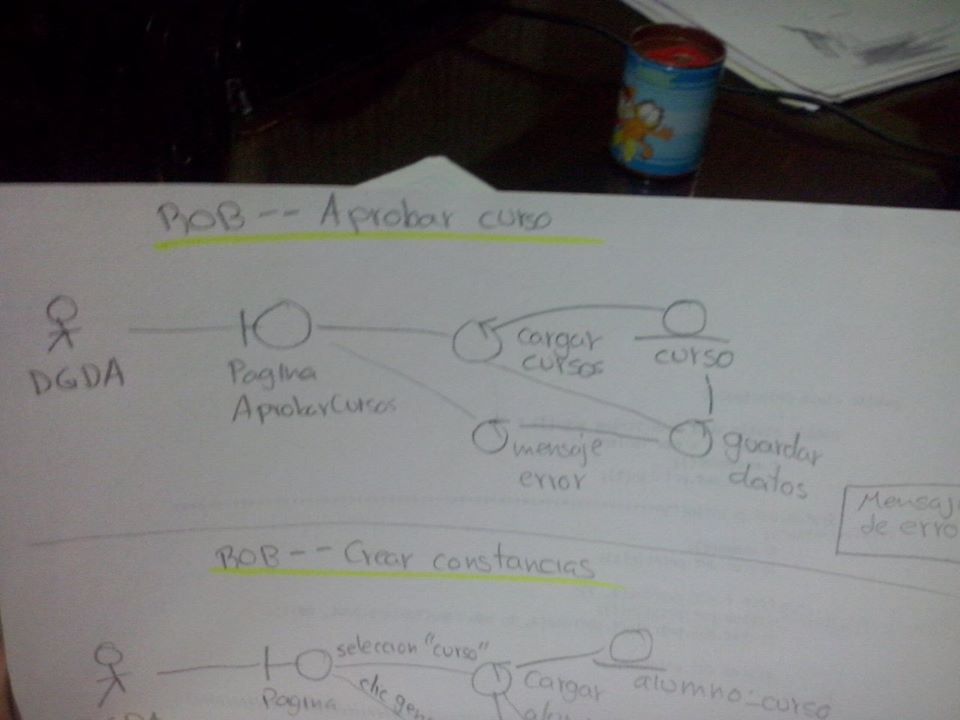 BOB -- Aprobar curso
DGDA
Pagina
AprobarCursos
cargar
cursos
curso
mensaje
error
guardar
datos
Mensaj
de erro
BOB -- Crear constancias
seleccion "curso"
Pagina
clic gen
Cargar
alumno_curso